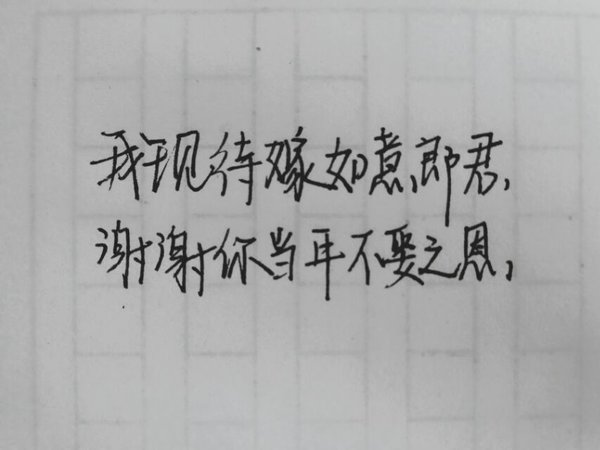 我现待嫁如意郎君，
谢谢你当年不娶之恩，